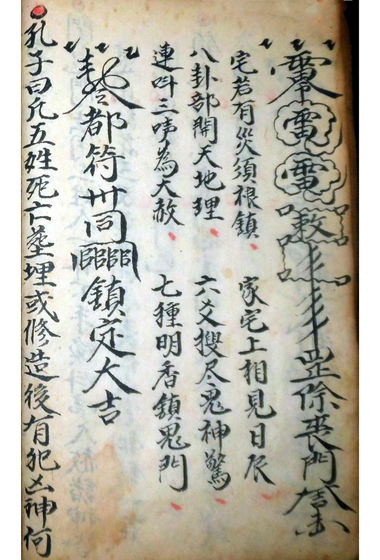 雷雷敕除喪門
宅若有災須根鎮 家宅上相見日辰
八卦部開天地理 六爻搜尽鬼神驚
連叫三為大赦 七種明香鎖鬼門
都符鎮定大吉
孔子曰凡五姓死亡塟埋或修造後有犯凶神何